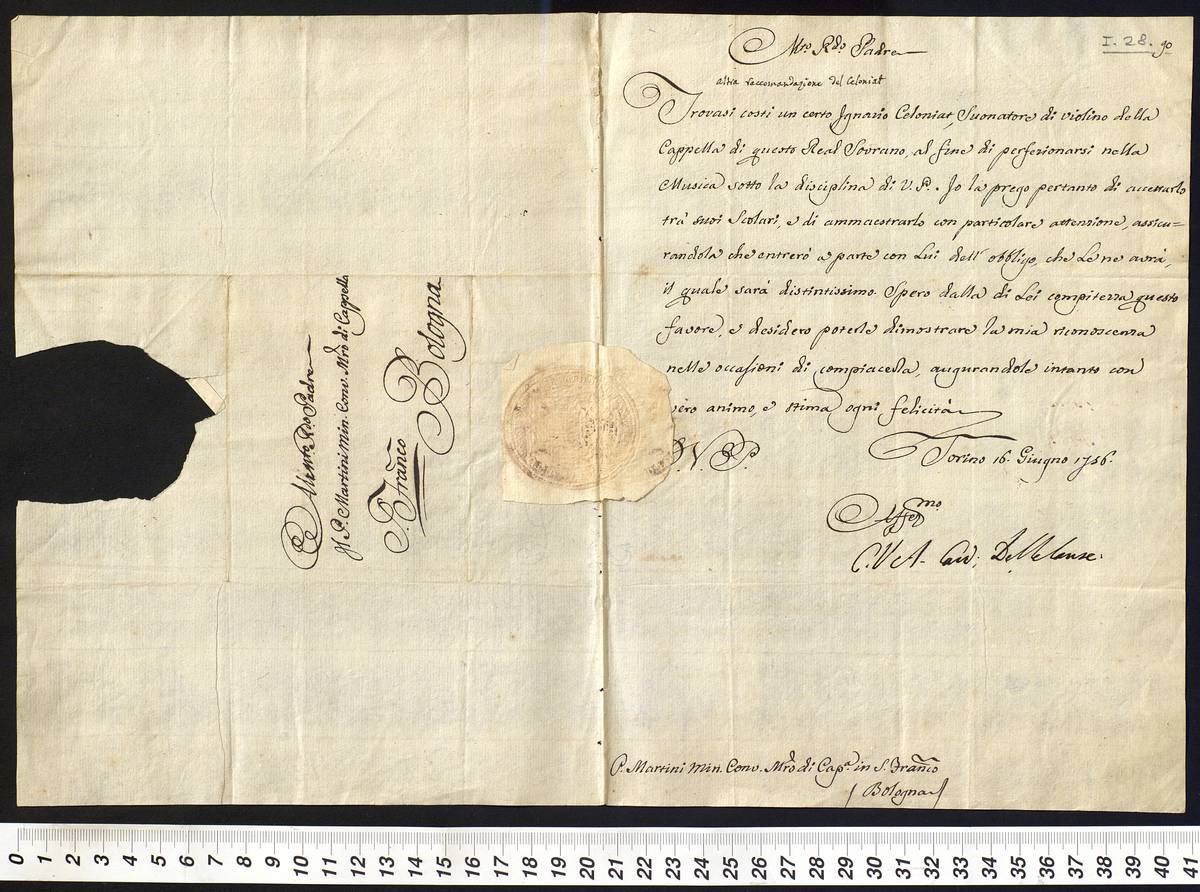 I. 28. 90
Mto. Rdo. Padre
altra raccomandazione del Celoniat
Trovasi costì un certo Ignazio Celoniat, Suonatore di violino della
Cappella di questo Real Sovrano, al fine di perfezionarsi nella
Musica sotto la disciplina di V. P. Io la prego pertanto di accettarlo
trà suoi Scolari, e di ammaestrarlo con particolare attenzione, assicu=
randola che entrerò a parte con Lui dell'obbligo, che Le ne avrà,
il quale sarà distintissimo. Spero dalla di Lei compitezza questo
favore, e desidero poterle dimostrare la mia riconoscenza
nelle occasioni di compiacerla, augurandole intanto con
vero animo, e stima ogni felicità
Torino 16. Giugno 1756.
Affmo
C. V. A. Card. Delle Lanze.
P. Martini Min. Conv. Mro di Capa. in S. Franco
Bologna
Al Molto Rdo Padre
Il P. Martini Min. Conv. Mro di Cappella
S. Franco Bologna
0 1 2 3 4 5 6 7 8 9 10 11 12 13 14 15 16 17 18 19 20 21 22 23 24 25 26 27 28 29 30 31 32 33 34 35 36 37 38 39 40 41